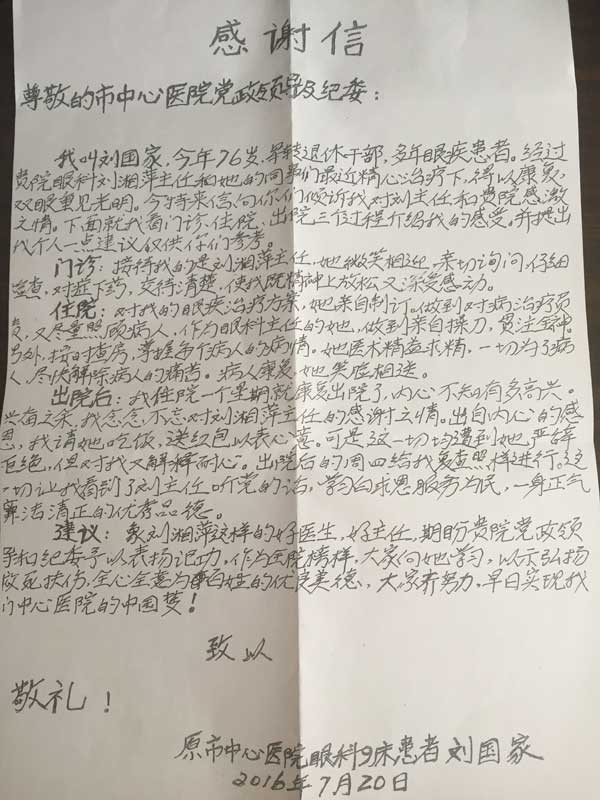 感谢信
尊敬的市中心医院党政领导及纪委：
我叫刘国家，今年76岁，军转退休干部，多年眼疾患者。经过
贵院眼科刘湘萍主任和她的同事们最近精心治疗下，得以康复，
双眼重见光明。今特来信向你们倾诉我对刘主任和贵院感激
之情。下面就我看门诊、住院、出院三个过程介绍我的感受。并提出
我个人一点建议仅供你们参考。
门诊：接待我的是刘湘萍主任，她微笑相迎、亲切询问、仔细
检查，对症下药，交待清楚，使我院精神上放松又深受感动。
住院：对我的眼疾治疗方案，她亲自制订。做到对病治疗负
责，又尽量照顾病人，作为眼科主任的她，做到亲自操刀，贯注全神。
另外，按时查房，掌握每个病人的病情。她医术精益求精，一切为了病
人，尽快解除病人的痛苦。病人康复，她笑脸相送。
出院后：我住院一个星期就康复出院了，内心不知有多高兴。
兴奋之余，我念念不忘对刘湘萍主任的感谢之情。出自内心的感
恩，我请她吃饭，送红包以表心意。可是这一切均遭到她严辞
拒绝，但对我又解释耐心。出院后的周四给我复查照样进行。这
一切让我看到了刘主任听党的话，学习白求恩服务为民，一身正气
算法清正的优秀品德。
建议：象刘湘萍这样的好医生，好主任，期盼贵院党政领
导和纪委予以表扬记功，作为全院榜样，大家向她学习，以示弘扬
救死扶伤，全心全意为百姓的优良美德，大家齐努力，早日实现我
们中心医院的中国梦！
致以
敬礼！
原市中心医院眼科9床患者刘国家
2016年7月20日